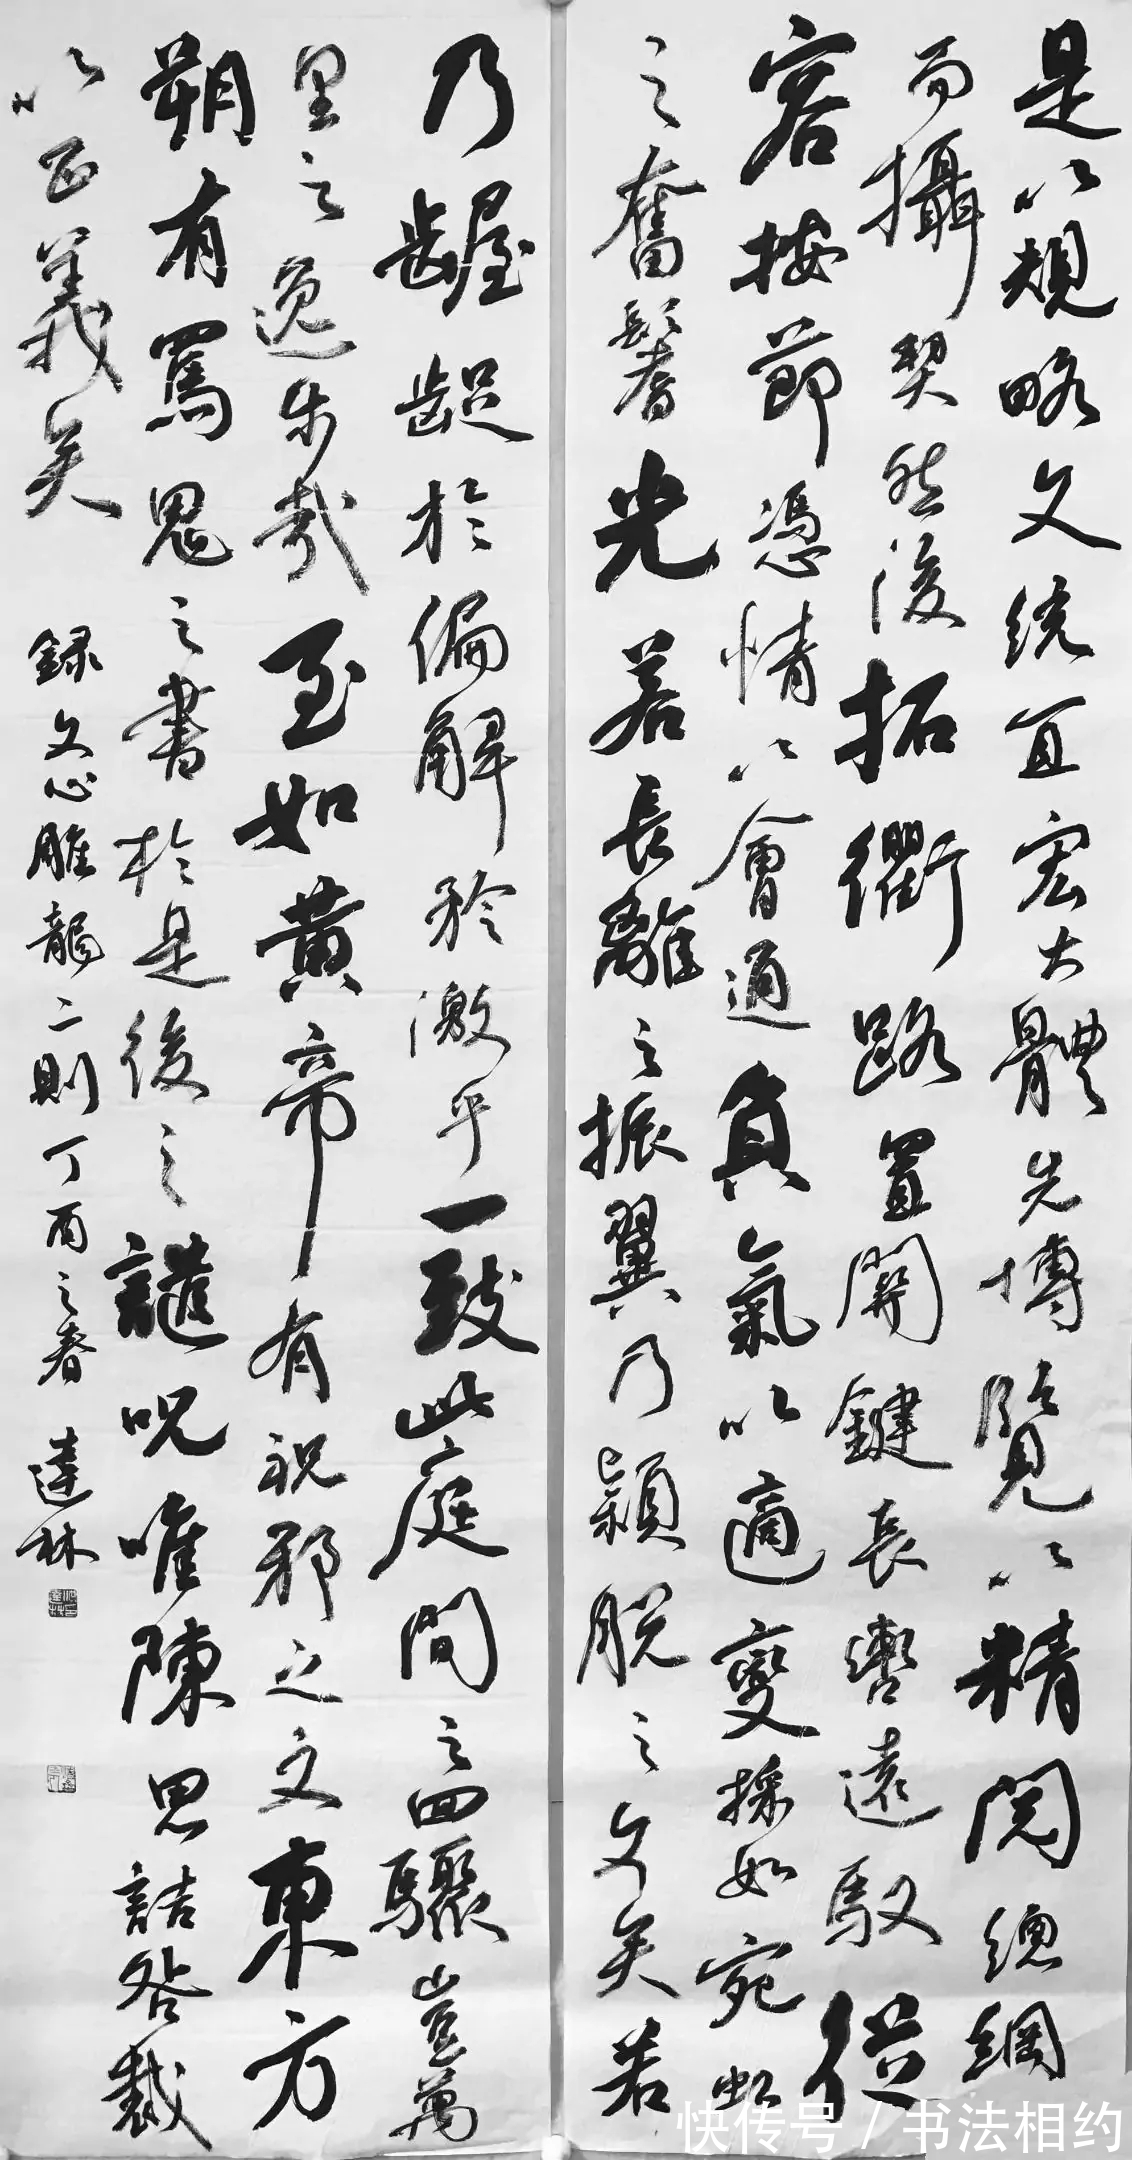 是以規略文統宜宏大體先博覽以精閱總綱
而攝契然後拓衢路置關鍵長轡遠馭從
容按節憑情以會通負氣以適變採如宛虹
之奮鬐光若長離之振翼乃穎脫之文矣若
乃齷齪於偏解矜激乎一致此庭間之回驟豈萬
里之逸步哉至如黃帝有祝邪之文東方
朔有罵鬼之書於是後之譴呪唯陳思詰咎裁
以正義矣
錄文心雕龍二則丁酉之春達林
快传号/书法相约